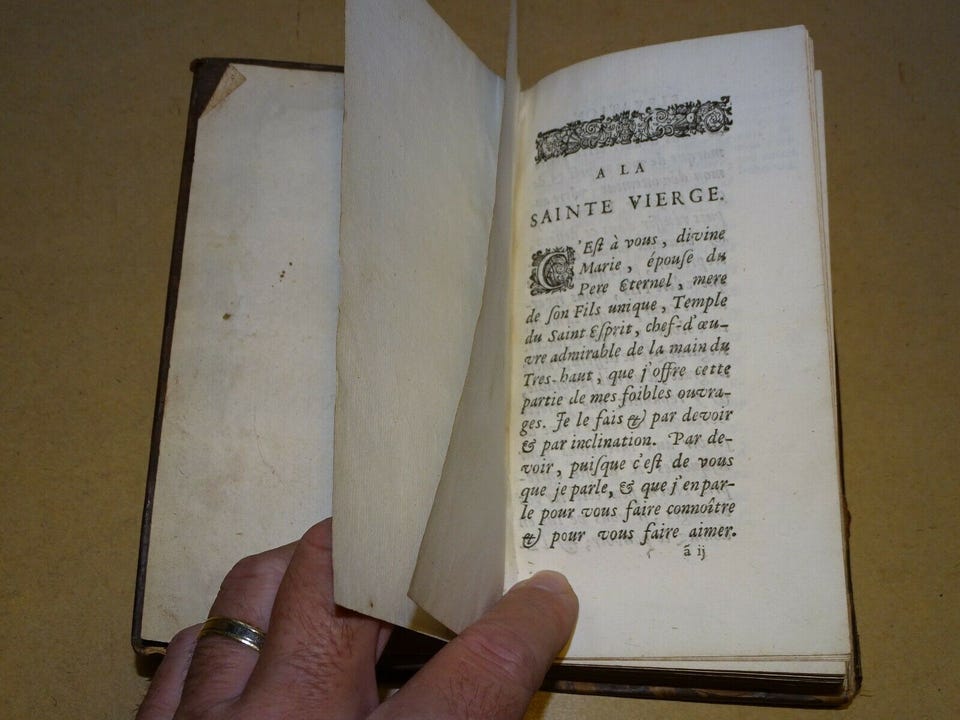 A LA
SAINTE VIERGE.
C'Eſt à vous, divine
Marie, épouſe du
Pere Eternel, mere
de ſon Fils unique, Temple
du Saint Eſprit, chef-d'œu-
vre admirable de la main du
Tres-haut, que j'offre cette
partie de mes foibles ouvra-
ges. Je le fais & par devoir
& par inclination. Par de-
voir, puiſque c'eſt de vous
que je parle, & que j'en par-
le pour vous faire connoître
& pour vous faire aimer.
ã ij